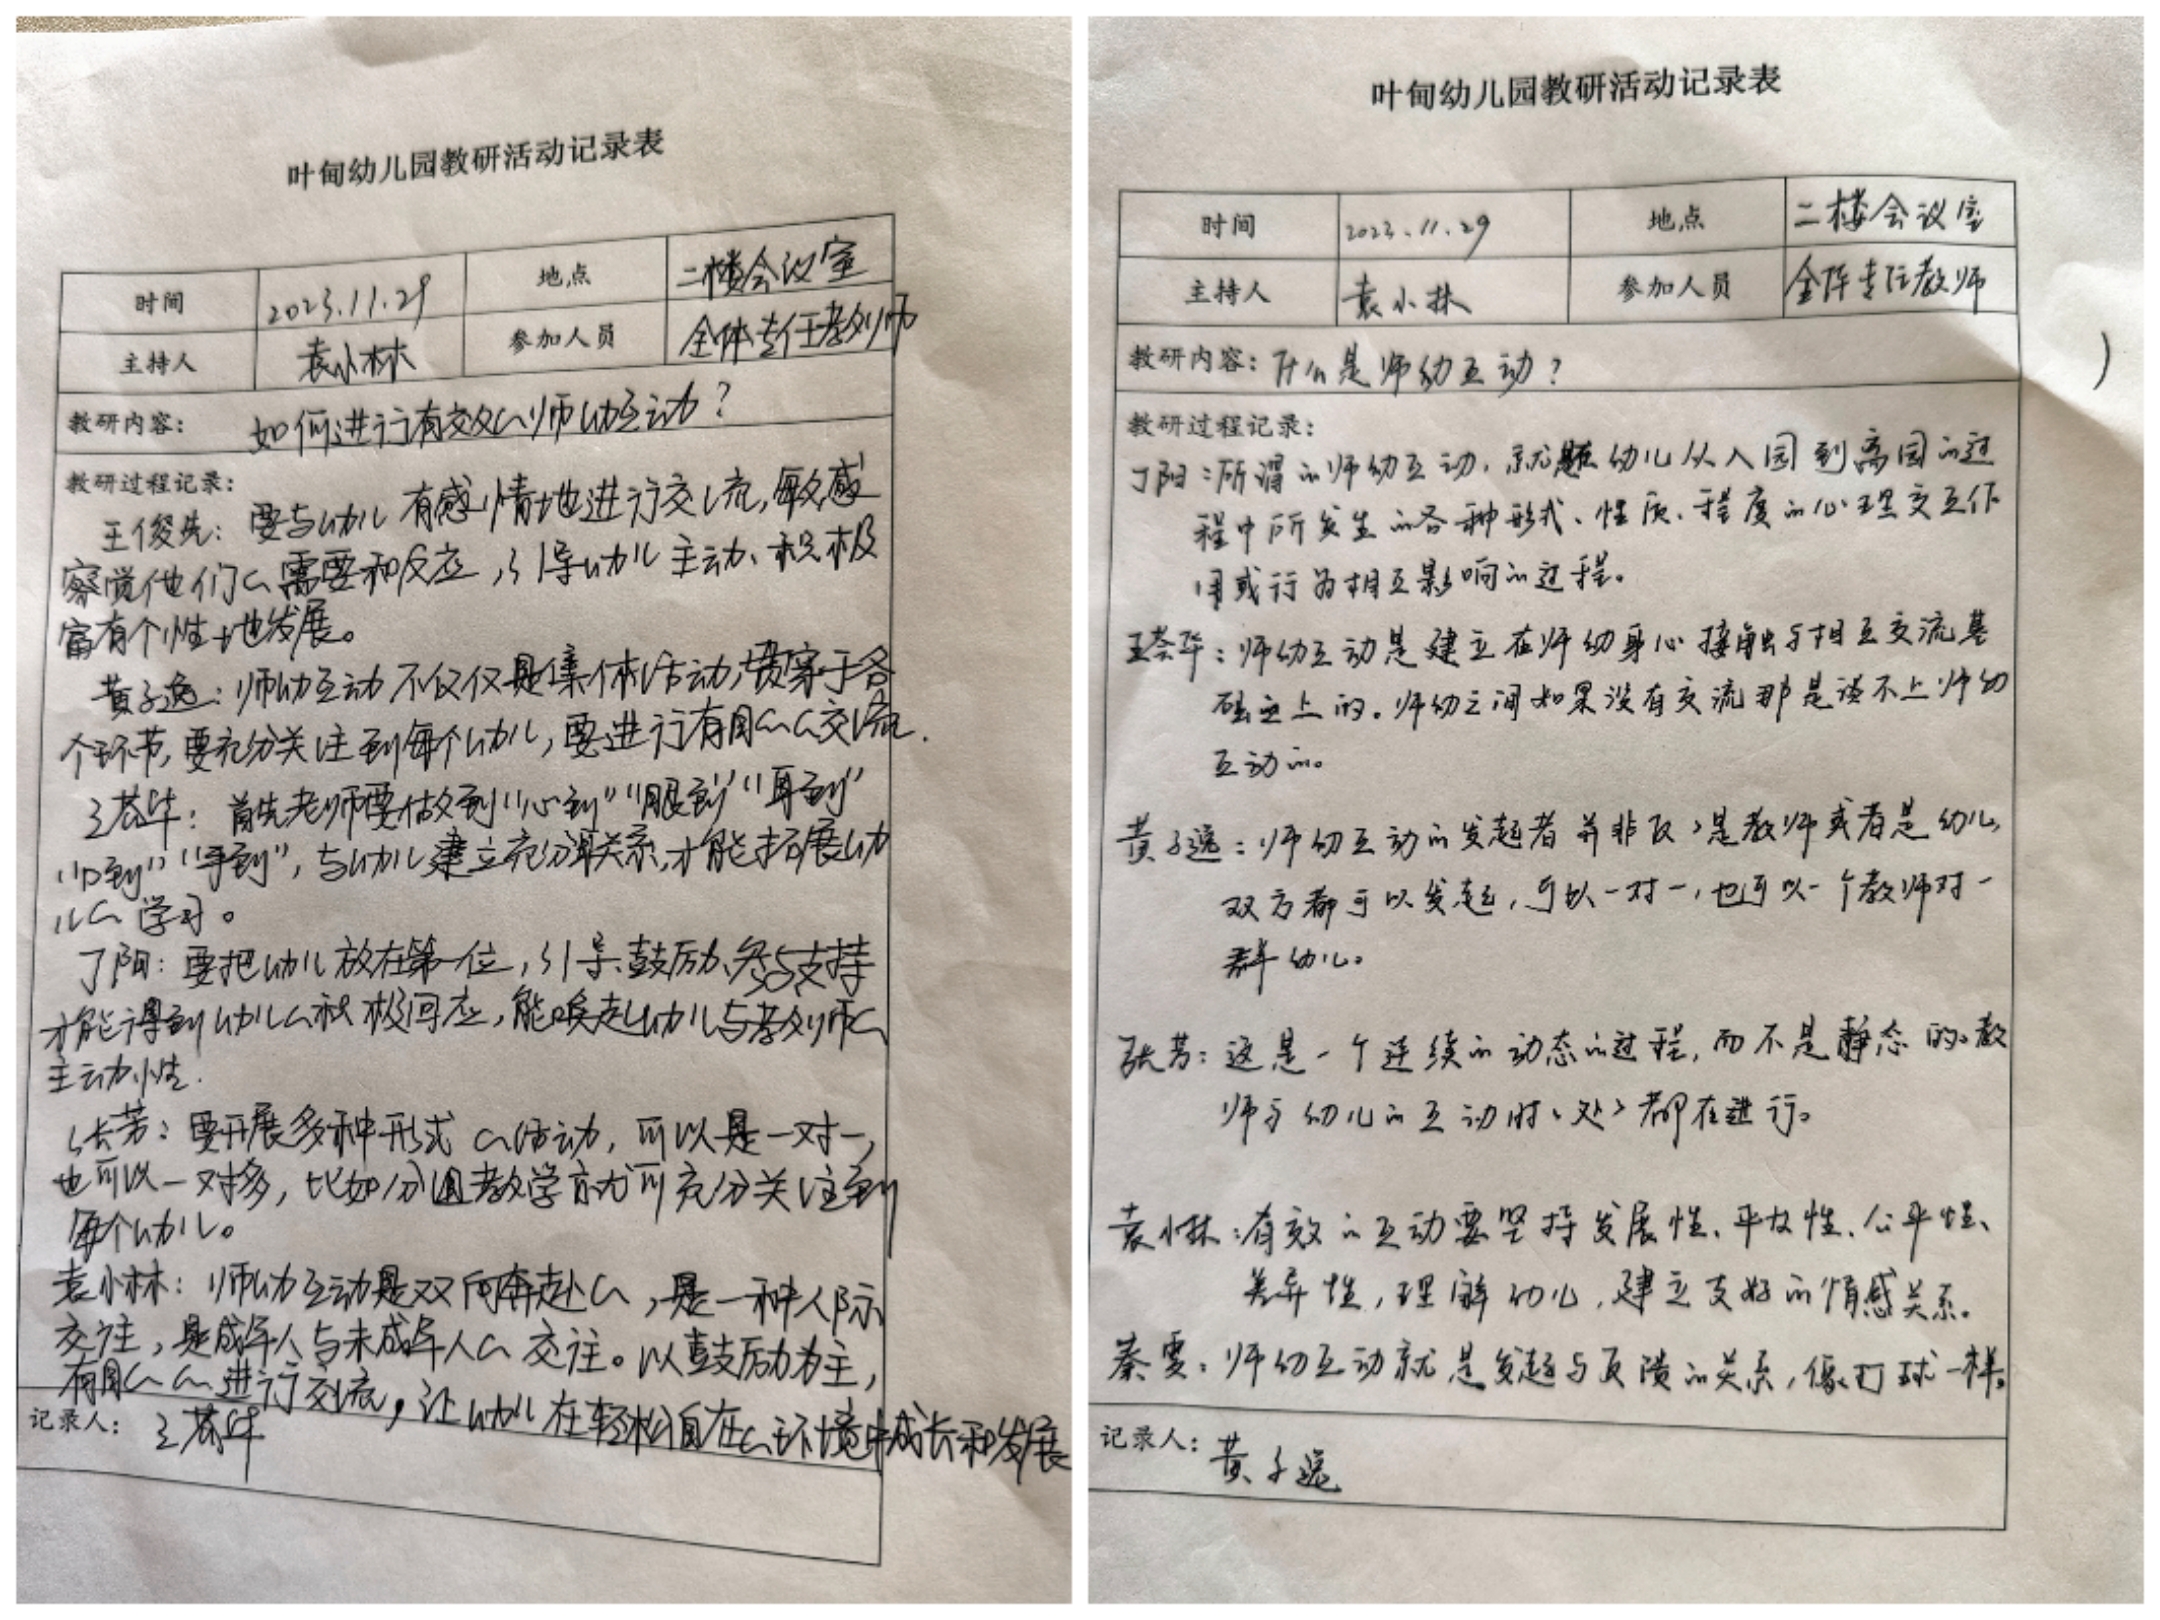 叶甸幼儿园教研活动记录表
时间 2023.11.29 地点 二楼会议室
主持人 袁小林 参加人员 全体专任教师
教研内容: 如何进行有效的师幼互动?
教研过程记录:
王俊先: 要与幼儿有感情地进行交流,敏感
察觉他们的需要和反应,引导幼儿主动、积极
富有个性地发展。
黄子逸: 师幼互动不仅仅是集体活动,贯穿于各
个环节,要充分关注到每个幼儿,要进行有目的的交流.
王荟华: 首先老师要做到“心到”“眼到”“耳到”
“口到”“手到”,与幼儿建立充分关系,才能拓展幼
儿的学习。
丁阳: 要把幼儿放在第一位,引导、鼓励、参与支持
才能得到幼儿的积极回应,能唤起幼儿与教师的
主动性.
张芳: 要开展多种形式的活动,可以是一对一,
也可以一对多,比如分组教学就可充分关注到
每个幼儿。
袁小林: 师幼互动是双向奔赴的,是一种人际
交往,是成年人与未成年人的交往。以鼓励为主,
有目的的进行交流,让幼儿在轻松自在的环境中成长和发展
记录人: 王荟华
叶甸幼儿园教研活动记录表
时间 2023.11.29 地点 二楼会议室
主持人 袁小林 参加人员 全体专任教师
教研内容: 什么是师幼互动?
教研过程记录:
丁阳:所谓的师幼互动,就是在幼儿从入园到离园的过
程中所发生的各种形式、性质、程度的心理交互作
用或行为相互影响的过程。
王荟华:师幼互动是建立在师幼身心接触与相互交流基
础之上的。师幼之间如果没有交流那是谈不上师幼
互动的。
黄子逸:师幼互动的发起者并非仅仅是教师或者是幼儿,
双方都可以发起,可以一对一,也可以一个教师对一
群幼儿。
张芳:这是一个连续的动态的过程,而不是静态的。教
师与幼儿的互动时时处处都在进行。
袁小林:有效的互动要坚持发展性、平衡性、公平性、
差异性,理解幼儿,建立友好的情感关系。
秦雯:师幼互动就是发起与反馈的关系,像打球一样。
记录人: 黄子逸